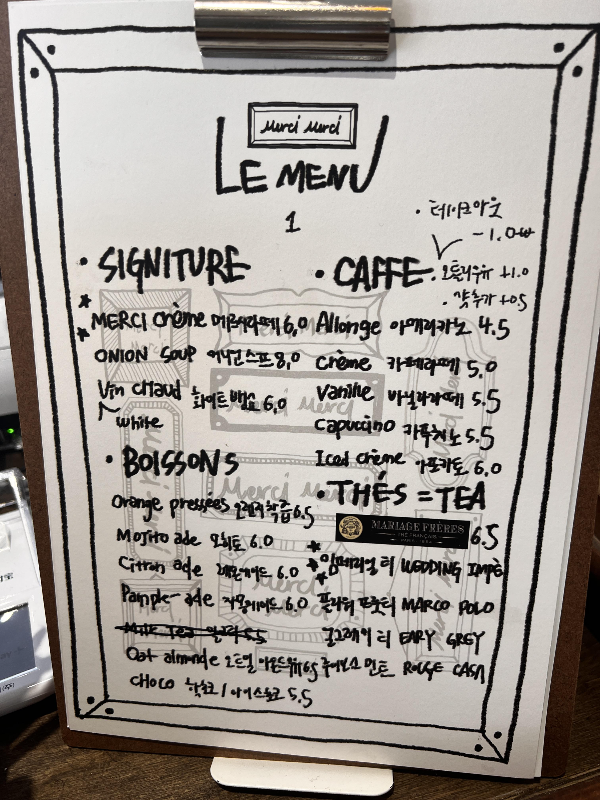 Merci Merci
LE MENU
1
· 테이크아웃
-1.0₩
· 오틀리우유 +1.0
· 샷추가 +0.5
· SIGNITURE
MERCI Crème 메르시라떼 6,0
ONION Soup 어니언스프 8,0
Vin chaud 화이트뱅쇼 6,0
white
· CAFFE
Allonge 아메리카노 4.5
Crème 카페라떼 5,0
Vanille 바닐라라떼 5.5
Capuccino 카푸치노 5.5
Iced Crème 아포카토 6.0
· BOISSONS
Orange pressées 오렌지착즙 6.5
Mojito ade 모히토 6.0
Citron ade 레몬에이드 6.0
Pample-ade 자몽에이드 6.0
Milk Tea 밀크티 5.5
Oat almonde 오트밀 아몬드우유 6.5
CHOCO 핫초코/아이스초코 5.5
· THÉS = TEA
MARIAGE FRÈRES 6.5
THÉ FRANÇAIS
임페리얼 티 WEDDING IMPÉ
MARCO POLO
얼그레이 티 EARY GREY
루이보스 민트 ROUGE CASA